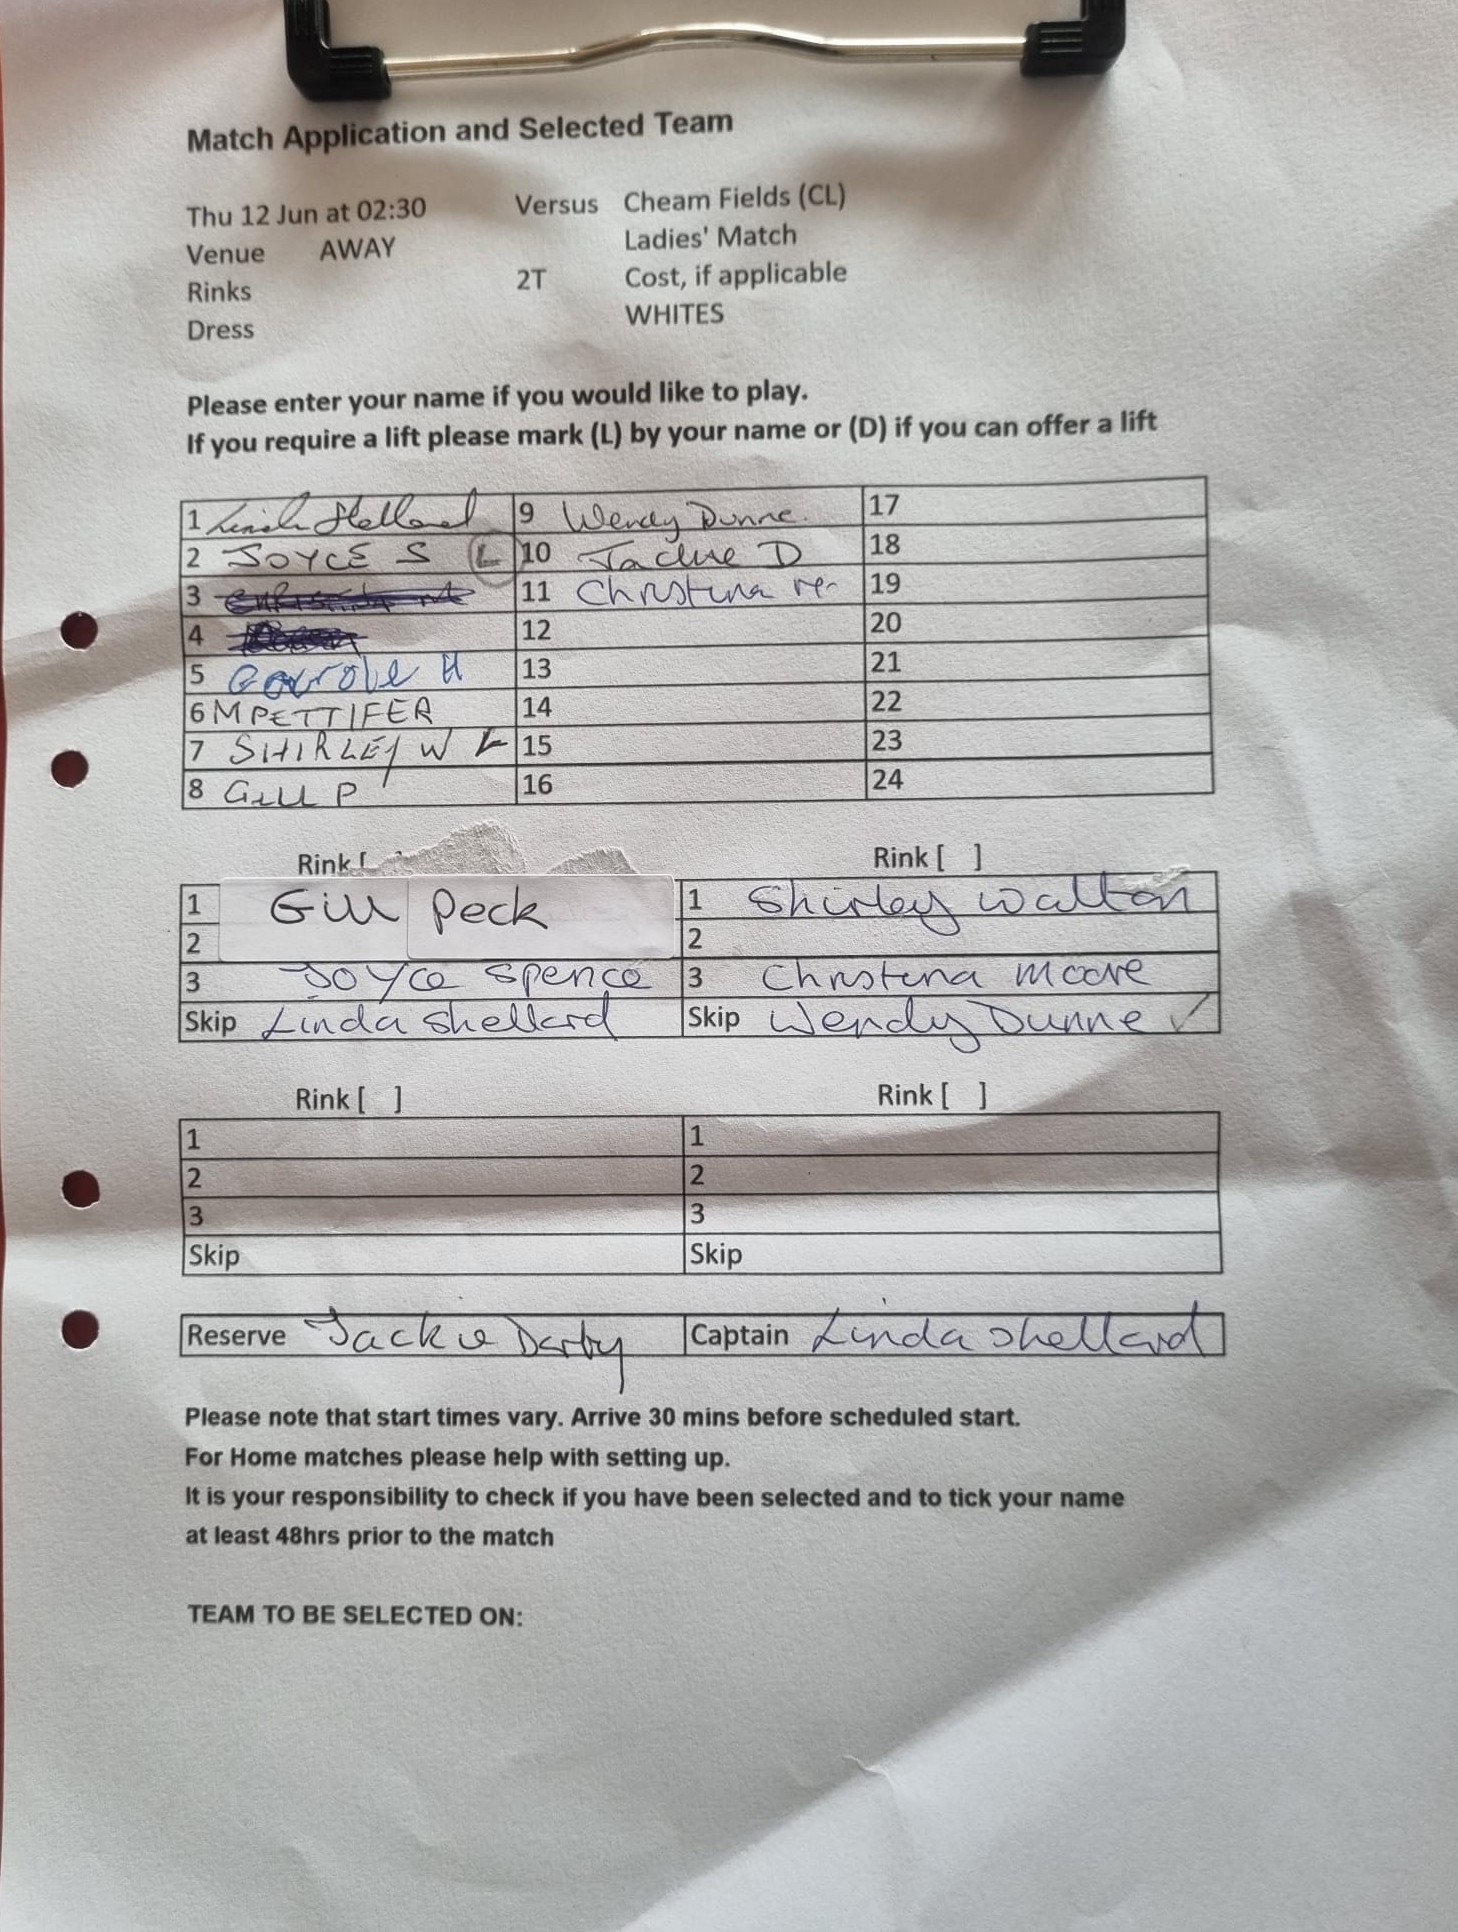 Match Application and Selected Team
Thu 12 Jun at 02:30 Versus Cheam Fields (CL)
Venue AWAY Ladies' Match
Rinks 2T Cost, if applicable
Dress WHITES
Please enter your name if you would like to play.
If you require a lift please mark (L) by your name or (D) if you can offer a lift
1 Linda Shellard 9 Wendy Dunne. 17
2 JOYCE S L 10 Jackie D 18
3 11 Christina 19
4 12 20
5 H 13 21
6 M PETTIFER 14 22
7 SHIRLEY W L 15 23
8 GILL P 16 24
Rink [ Rink [ ]
1 Gill Peck 1 Shirley Walton
2 2
3 Joyce Spence 3 Christina Moore
Skip Linda Shellard Skip Wendy Dunne ✓
Rink [ ] Rink [ ]
1 1
2 2
3 3
Skip Skip
Reserve Jackie Darby Captain Linda Shellard
Please note that start times vary. Arrive 30 mins before scheduled start.
For Home matches please help with setting up.
It is your responsibility to check if you have been selected and to tick your name
at least 48hrs prior to the match
TEAM TO BE SELECTED ON: